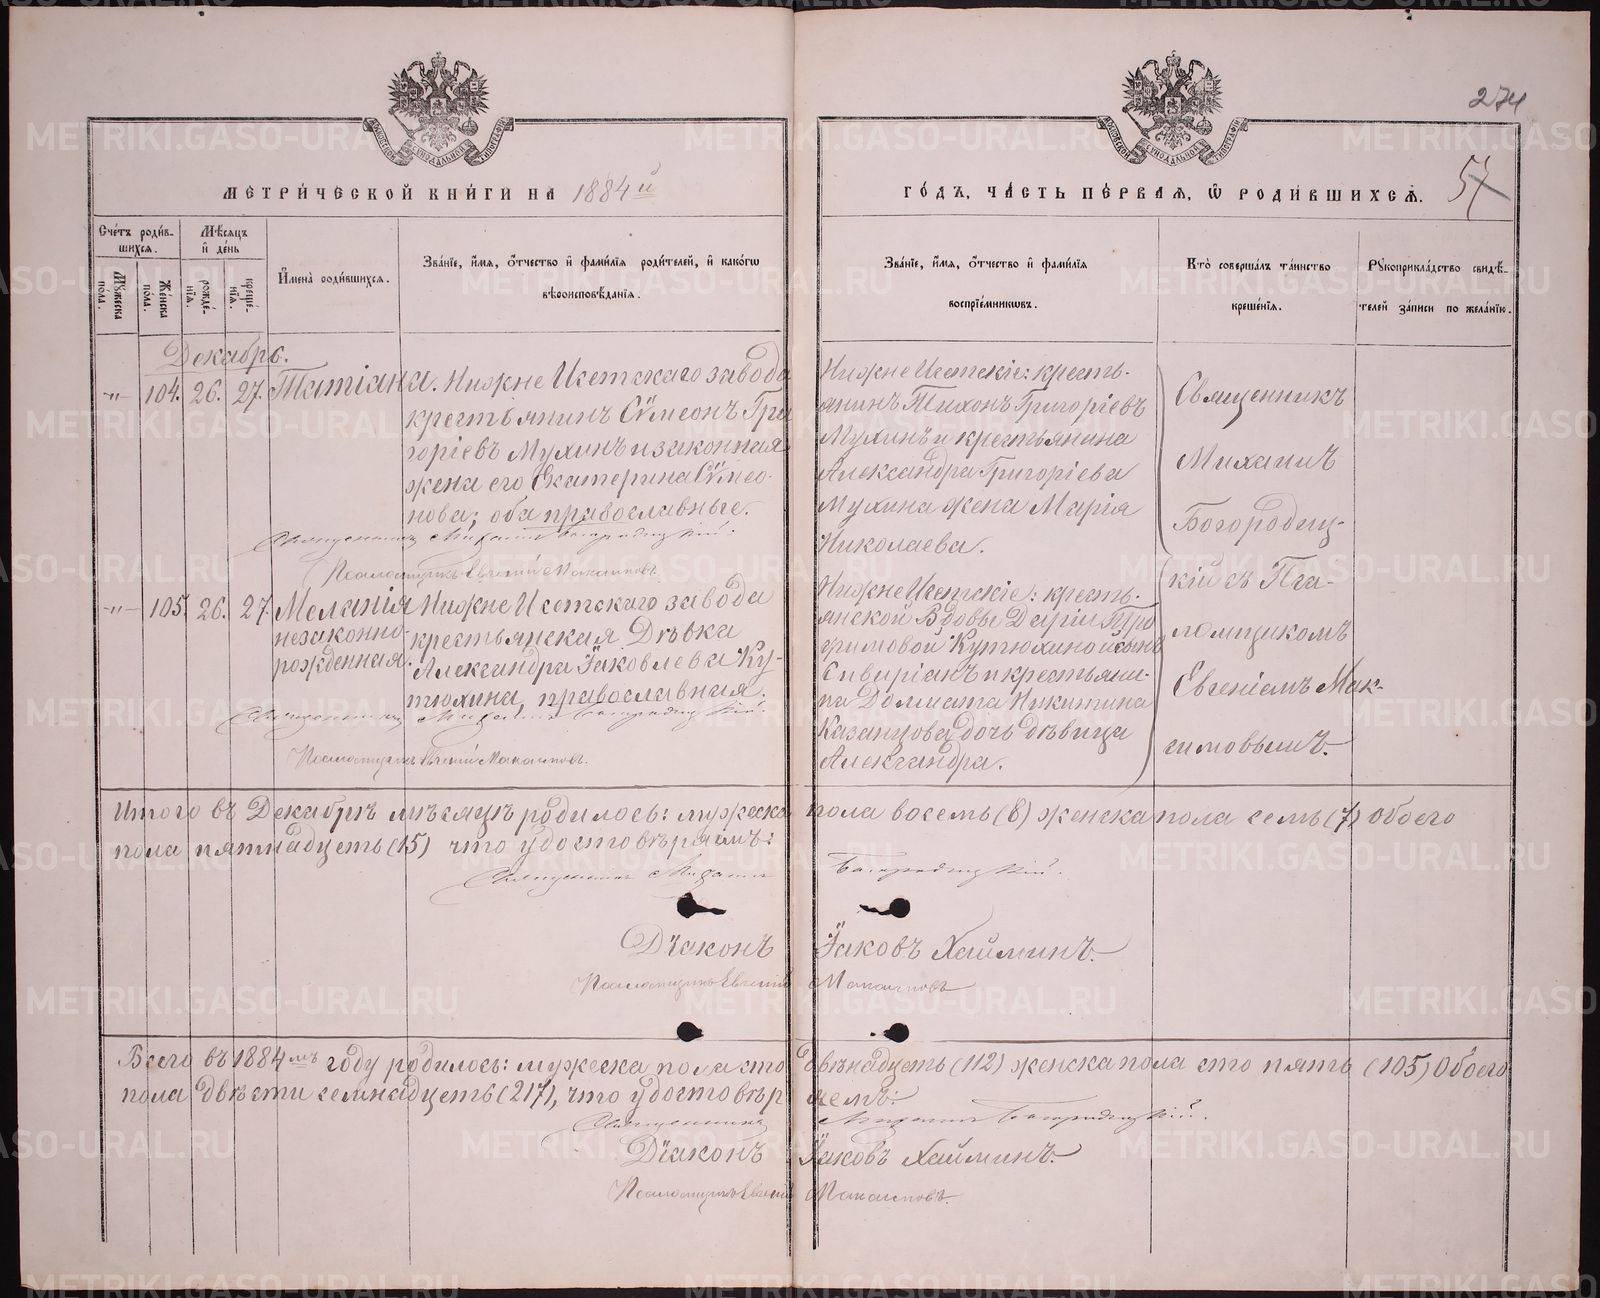 274
57
МЕТРИ́ЧЕСКОЙ КНИ́ГИ НА 1884й
ГО́ДЪ, ЧА́СТЬ ПЕ́РВАЯ, Ѡ РОДИ́ВШИХСЯ.
Сче́тъ роди́в-
шихся.
Мѣ́сяцъ
и҆ де́нь
Му́жеска
по́ла.
Же́нска
по́ла.
рожде́-
нїѧ.
креще́-
нїѧ.
И҆мена̀ роди́вшихся.
Зва́нїе, и҆́мя, ѻ҆́тчество и҆ фами́лїя роди́телей, и҆ како́гѡ
вѣроисповѣ́данїѧ.
Зва́нїе, и҆́мя, ѻ҆́тчество и҆ фами́лїя
воспрїе́мникѡвъ.
Кто̀ соверша́лъ та́инство
креще́нїѧ.
Рꙋкоприкла́дство свидѣ́-
телей за́писи по жела́нїю.
Декабрь.
-„- 104. 26. 27. Татіана. Нижне Исетскаго завода
крестьянинъ Сѵмеонъ Гри
горіевъ Мухинъ и законная
жена его Екатерина Сѵмео-
нова; оба православные.
Священникъ Михаилъ Богородицкій.
Псаломщикъ Евгеній Максимовъ.
Нижне Исетскіе: кресть-
янинъ Тихонъ Григоріевъ
Мухинъ и крестьянина
Александра Григоріева
Мухина жена Марія
Николаева.
-„- 105. 26. 27. Меланія Нижне Исетскаго завода
незаконно-
рожденная.
крестьянская Дѣвка
Александра Іаковлева Ку-
тюхина, православная.
Священникъ Михаилъ Богородицкій.
Псаломщикъ Евгеній Максимовъ.
Нижне Исетскіе: кресть-
янской Вдовы Даріи Тро
фимовой Кутюхиной сынъ
Сивиріанъ и крестьяни-
на Долмата Никитина
Казанцова дочь дѣвица
Александра.
Священникъ
Михаилъ
Богородиц-
кій съ Пса-
ломщикомъ
Евгеніемъ Мак-
симовымъ.
Итого въ Декабрѣ мѣсяцѣ родилось: мужеска пола восемь (8) женска пола семь (7) обоего
пола пятнадцать (15) что удостовѣряемъ:
Священникъ Михаилъ Богородицкій.
Діаконъ Іаковъ Хайминъ.
Псаломщикъ Евгеній Максимовъ
Всего въ 1884мъ году родилось: мужеска пола сто двѣнадцать (112) женска пола сто пять (105) обоего
пола двѣсти семнадцать (217), что удостовѣряемъ:
Священникъ Михаилъ Богородицкій.
Діаконъ Іаковъ Хайминъ.
Псаломщикъ Евгеній Максимовъ.
METRIKI.GASO-URAL.RU